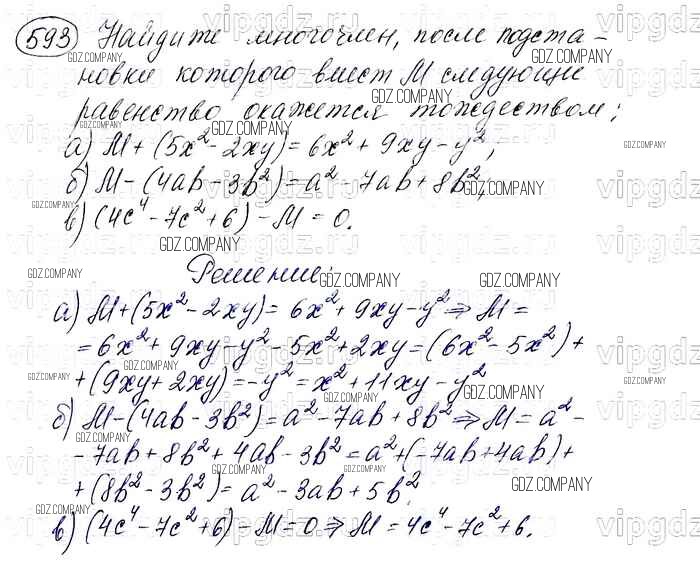 593 Найдите многочлен, после подста-
новки которого вмест М следующие
равенство окажется тождеством:
а) М + (5x² - 2xy) = 6x² + 9xy - y²,
б) М - (4ab - 3b²) = a² - 7ab + 8b²,
в) (4c⁴ - 7c² + 6) - М = 0.
Решение:
а) М + (5x² - 2xy) = 6x² + 9xy - y² ⇒ М =
= 6x² + 9xy - y² - 5x² + 2xy = (6x² - 5x²) +
+ (9xy + 2xy) = - y² = x² + 11xy - y²
б) М - (4ab - 3b²) = a² - 7ab + 8b² ⇒ М = a² -
- 7ab + 8b² + 4ab - 3b² = a² + (-7ab + 4ab) +
+ (8b² - 3b²) = a² - 3ab + 5b²
в) (4c⁴ - 7c² + 6) - М = 0 ⇒ М = 4c⁴ - 7c² + 6.
GDZ.COMPANY
vipgdz.ru